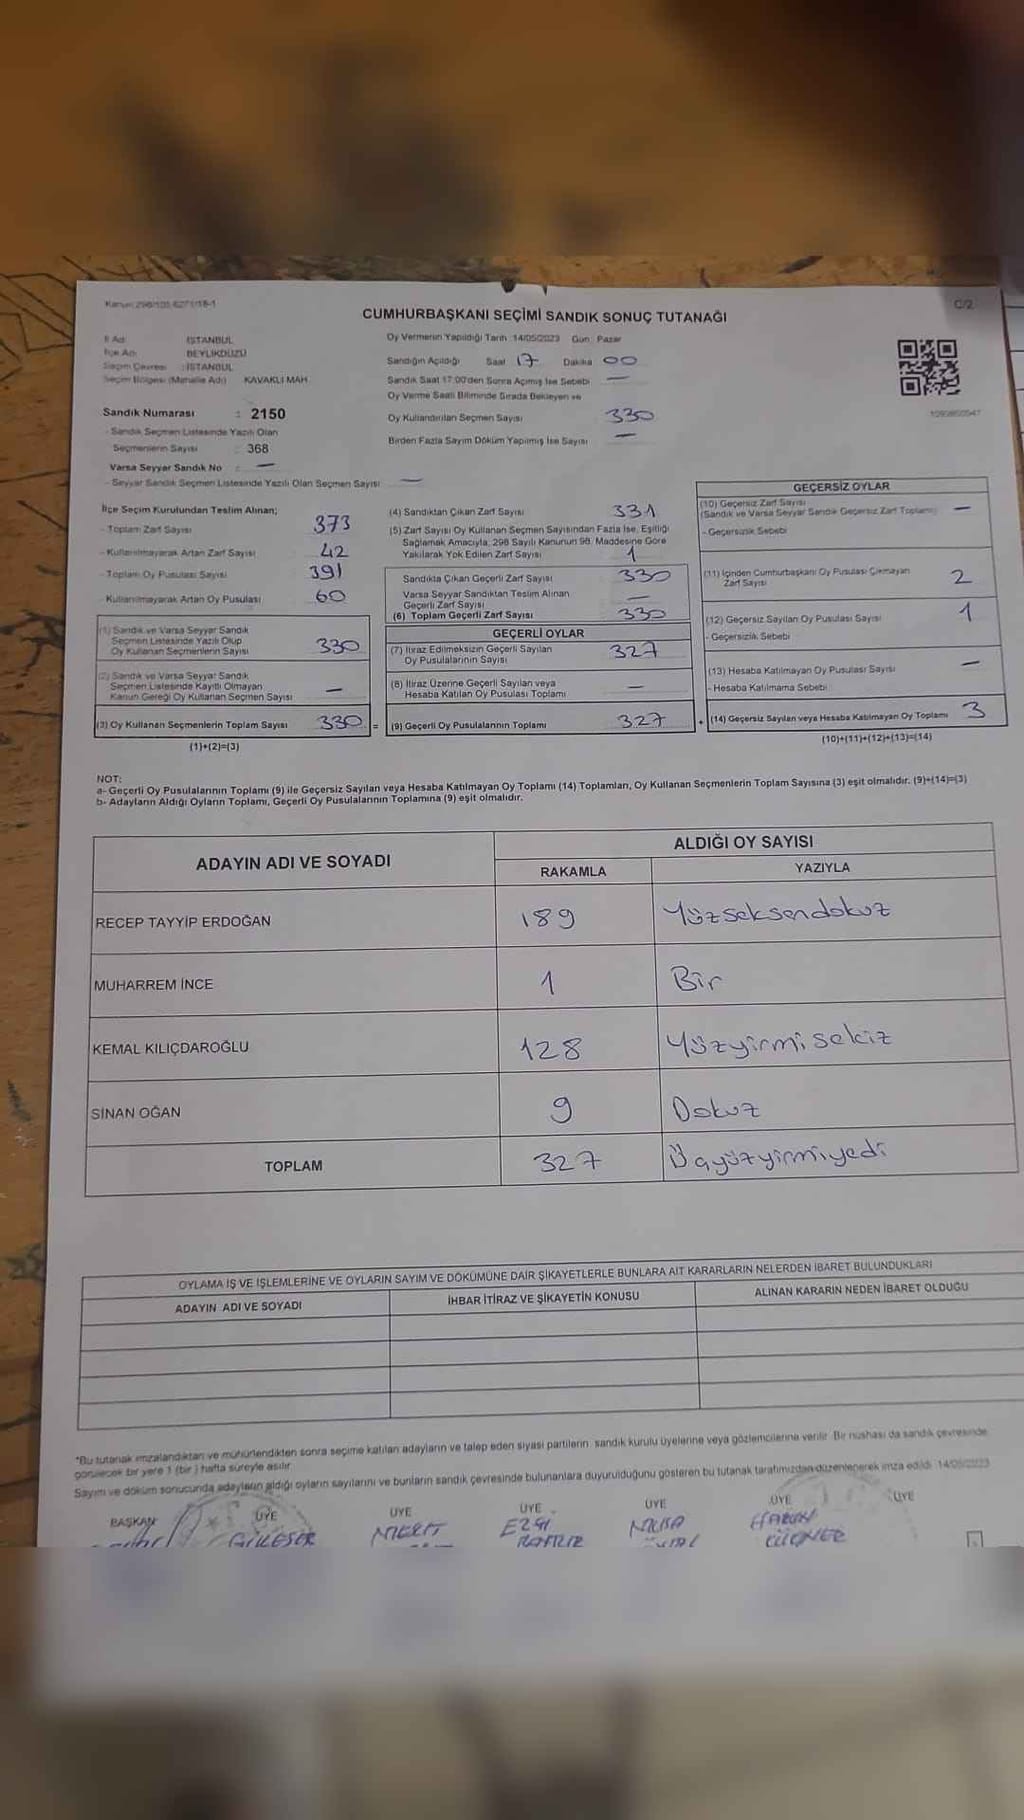 Kanun: 298/105 6271/18-1
C/2
CUMHURBAŞKANI SEÇİMİ SANDIK SONUÇ TUTANAĞI
İl Adı : İSTANBUL
İlçe Adı : BEYLİKDÜZÜ
Seçim Çevresi : İSTANBUL
Seçim Bölgesi (Mahalle Adı) KAVAKLI MAH.
Sandık Numarası : 2150
- Sandık Seçmen Listesinde Yazılı Olan
Seçmenlerin Sayısı : 368
Varsa Seyyar Sandık No : —
- Seyyar Sandık Seçmen Listesinde Yazılı Olan Seçmen Sayısı —
Oy Vermenin Yapıldığı Tarih :14/05/2023 Gün: Pazar
Sandığın Açıldığı Saat 17 Dakika 00
Sandık Saat 17:00'den Sonra Açılmış İse Sebebi —
Oy Verme Saati Bitiminde Sırada Bekleyen ve
Oy Kullandırılan Seçmen Sayısı 330
Birden Fazla Sayım Döküm Yapılmış İse Sayısı —
İlçe Seçim Kurulundan Teslim Alınan;
- Toplam Zarf Sayısı 373
- Kullanılmayarak Artan Zarf Sayısı 42
- Toplam Oy Pusulası Sayısı 391
- Kullanılmayarak Artan Oy Pusulası 60
(1) Sandık ve Varsa Seyyar Sandık
Seçmen Listesinde Yazılı Olup
Oy Kullanan Seçmenlerin Sayısı 330
(2) Sandık ve Varsa Seyyar Sandık
Seçmen Listesinde Kayıtlı Olmayan
Kanun Gereği Oy Kullanan Seçmen Sayısı —
(3) Oy Kullanan Seçmenlerin Toplam Sayısı 330 =
(1)+(2)=(3)
(4) Sandıktan Çıkan Zarf Sayısı 331
(5) Zarf Sayısı Oy Kullanan Seçmen Sayısından Fazla İse, Eşitliği
Sağlamak Amacıyla, 298 Sayılı Kanunun 98. Maddesine Göre
Yakılarak Yok Edilen Zarf Sayısı 1
Sandıkta Çıkan Geçerli Zarf Sayısı 330
Varsa Seyyar Sandıktan Teslim Alınan
Geçerli Zarf Sayısı —
(6) Toplam Geçerli Zarf Sayısı 330
GEÇERLİ OYLAR
(7) İtiraz Edilmeksizin Geçerli Sayılan
Oy Pusulalarının Sayısı 327
(8) İtiraz Üzerine Geçerli Sayılan veya
Hesaba Katılan Oy Pusulası Toplamı —
(9) Geçerli Oy Pusulalarının Toplamı 327 +
GEÇERSİZ OYLAR
(10) Geçersiz Zarf Sayısı
(Sandık ve Varsa Seyyar Sandık Geçersiz Zarf Toplamı) —
- Geçersizlik Sebebi
(11) İçinden Cumhurbaşkanı Oy Pusulası Çıkmayan
Zarf Sayısı 2
(12) Geçersiz Sayılan Oy Pusulası Sayısı 1
- Geçersizlik Sebebi
(13) Hesaba Katılmayan Oy Pusulası Sayısı —
- Hesaba Katılmama Sebebi
(14) Geçersiz Sayılan veya Hesaba Katılmayan Oy Toplamı 3
(10)+(11)+(12)+(13)=(14)
NOT:
a- Geçerli Oy Pusulalarının Toplamı (9) ile Geçersiz Sayılan veya Hesaba Katılmayan Oy Toplamı (14) Toplamları, Oy Kullanan Seçmenlerin Toplam Sayısına (3) eşit olmalıdır. (9)+(14)=(3)
b- Adayların Aldığı Oyların Toplamı, Geçerli Oy Pusulalarının Toplamına (9) eşit olmalıdır.
ADAYIN ADI VE SOYADI
ALDIĞI OY SAYISI
RAKAMLA YAZIYLA
RECEP TAYYİP ERDOĞAN 189 Yüzseksendokuz
MUHARREM İNCE 1 Bir
KEMAL KILIÇDAROĞLU 128 Yüzyirmisekiz
SİNAN OĞAN 9 Dokuz
TOPLAM 327 Üçyüzyirmiyedi
OYLAMA İŞ VE İŞLEMLERİNE VE OYLARIN SAYIM VE DÖKÜMÜNE DAİR ŞİKAYETLERLE BUNLARA AİT KARARLARIN NELERDEN İBARET BULUNDUKLARI
ADAYIN ADI VE SOYADI İHBAR İTİRAZ VE ŞİKAYETİN KONUSU ALINAN KARARIN NEDEN İBARET OLDUĞU
*Bu tutanak imzalandıktan ve mühürlendikten sonra seçime katılan adayların ve talep eden siyasi partilerin, sandık kurulu üyelerine veya gözlemcilerine verilir. Bir nüshası da sandık çevresinde
görülecek bir yere 1 (bir ) hafta süreyle asılır.
Sayım ve döküm sonucunda adayların aldığı oyların sayılarını ve bunların sandık çevresinde bulunanlara duyurulduğunu gösteren bu tutanak tarafımızdan düzenlenerek imza edildi. 14/05/2023
BAŞKAN ÜYE ÜYE ÜYE ÜYE ÜYE ÜYE
MERT EZGİ HARUN